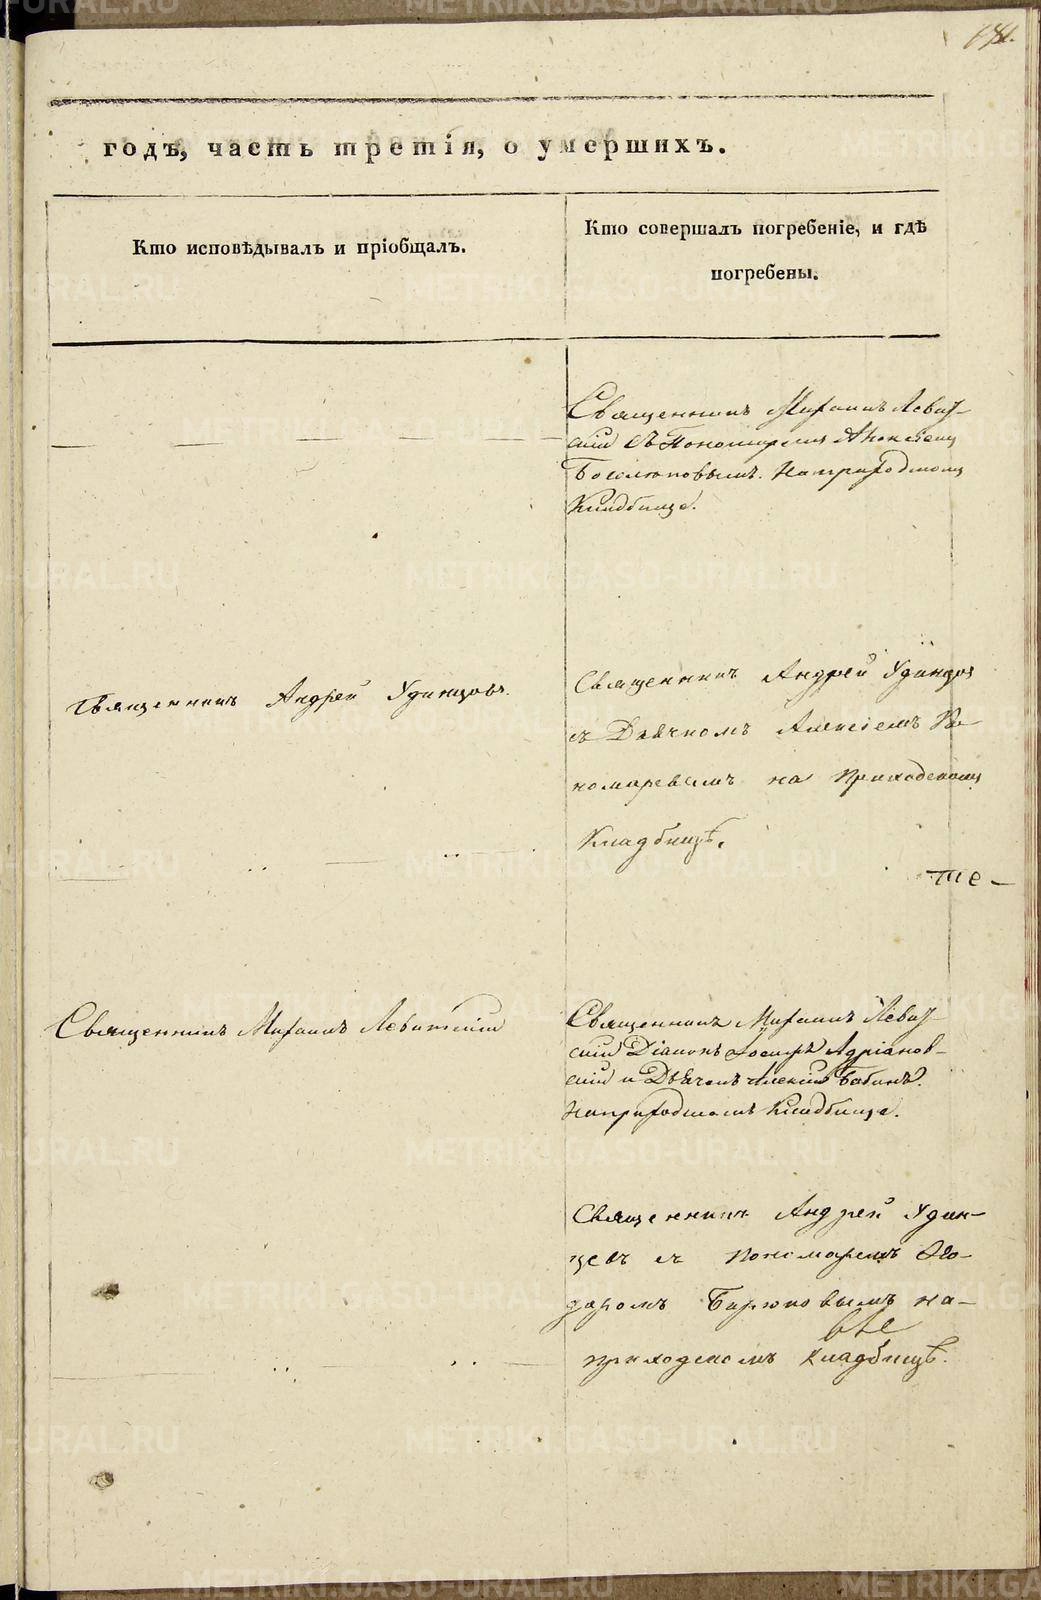 годъ, часть третія, о умершихъ.
Кто исповѣдывалъ и пріобщалъ.
Кто совершалъ погребеніе, и гдѣ
погребены.
Священникъ Михаилъ Левит-
скій съ Пономаремъ Алексіемъ
На приходскомъ
Кладбище.
Священникъ Андрей Удинцовъ.
Священникъ Андрей Удинцов
съ Дьячкомъ Алексіемъ По-
номаревымъ на Приходскомъ
Кладбищѣ.
те-
Священникъ Михаилъ Левитскій
Священникъ Михаилъ Левит-
скій Діаконъ Іосифъ Адріанов-
скій и Дьячекъ Алексій Бабинъ.
На приходскомъ Кладбище.
Священникъ Андрей Удин-
цевъ съ Пономаремъ Ѳео-
доромъ Бирюковымъ на-
приходскомъ Кладбищѣ.
METRIKI.GASO-URAL.RU